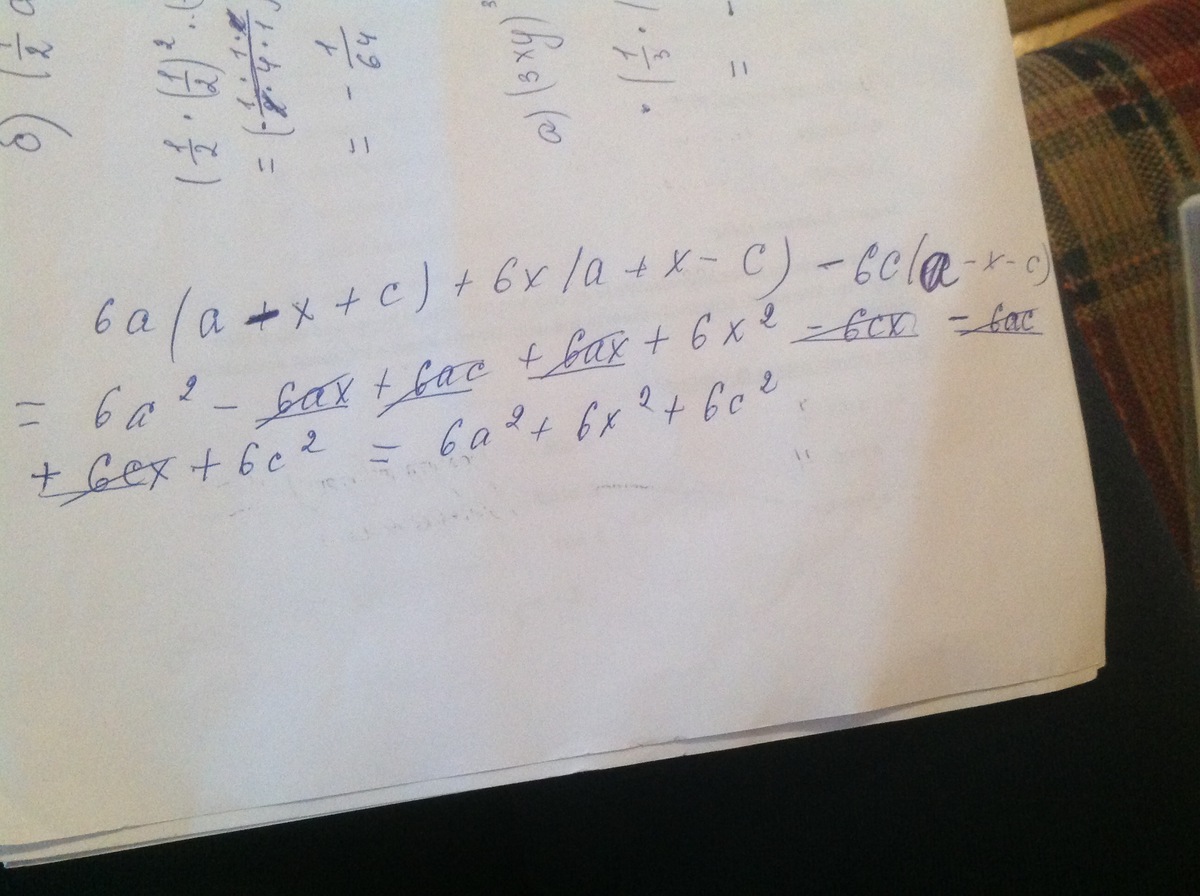 б) (1/2 a
(1/2 · (1/2)² · (
= (-1·1·1/x·4·1)
= - 1/64
а) (3xy)³
· (1/3 ·
= -
6a(a - x + c) + 6x(a + x - c) - 6c(a - x - c)
= 6a² - 6ax + 6ac + 6ax + 6x² - 6cx - 6ac
+ 6cx + 6c² = 6a² + 6x² + 6c²